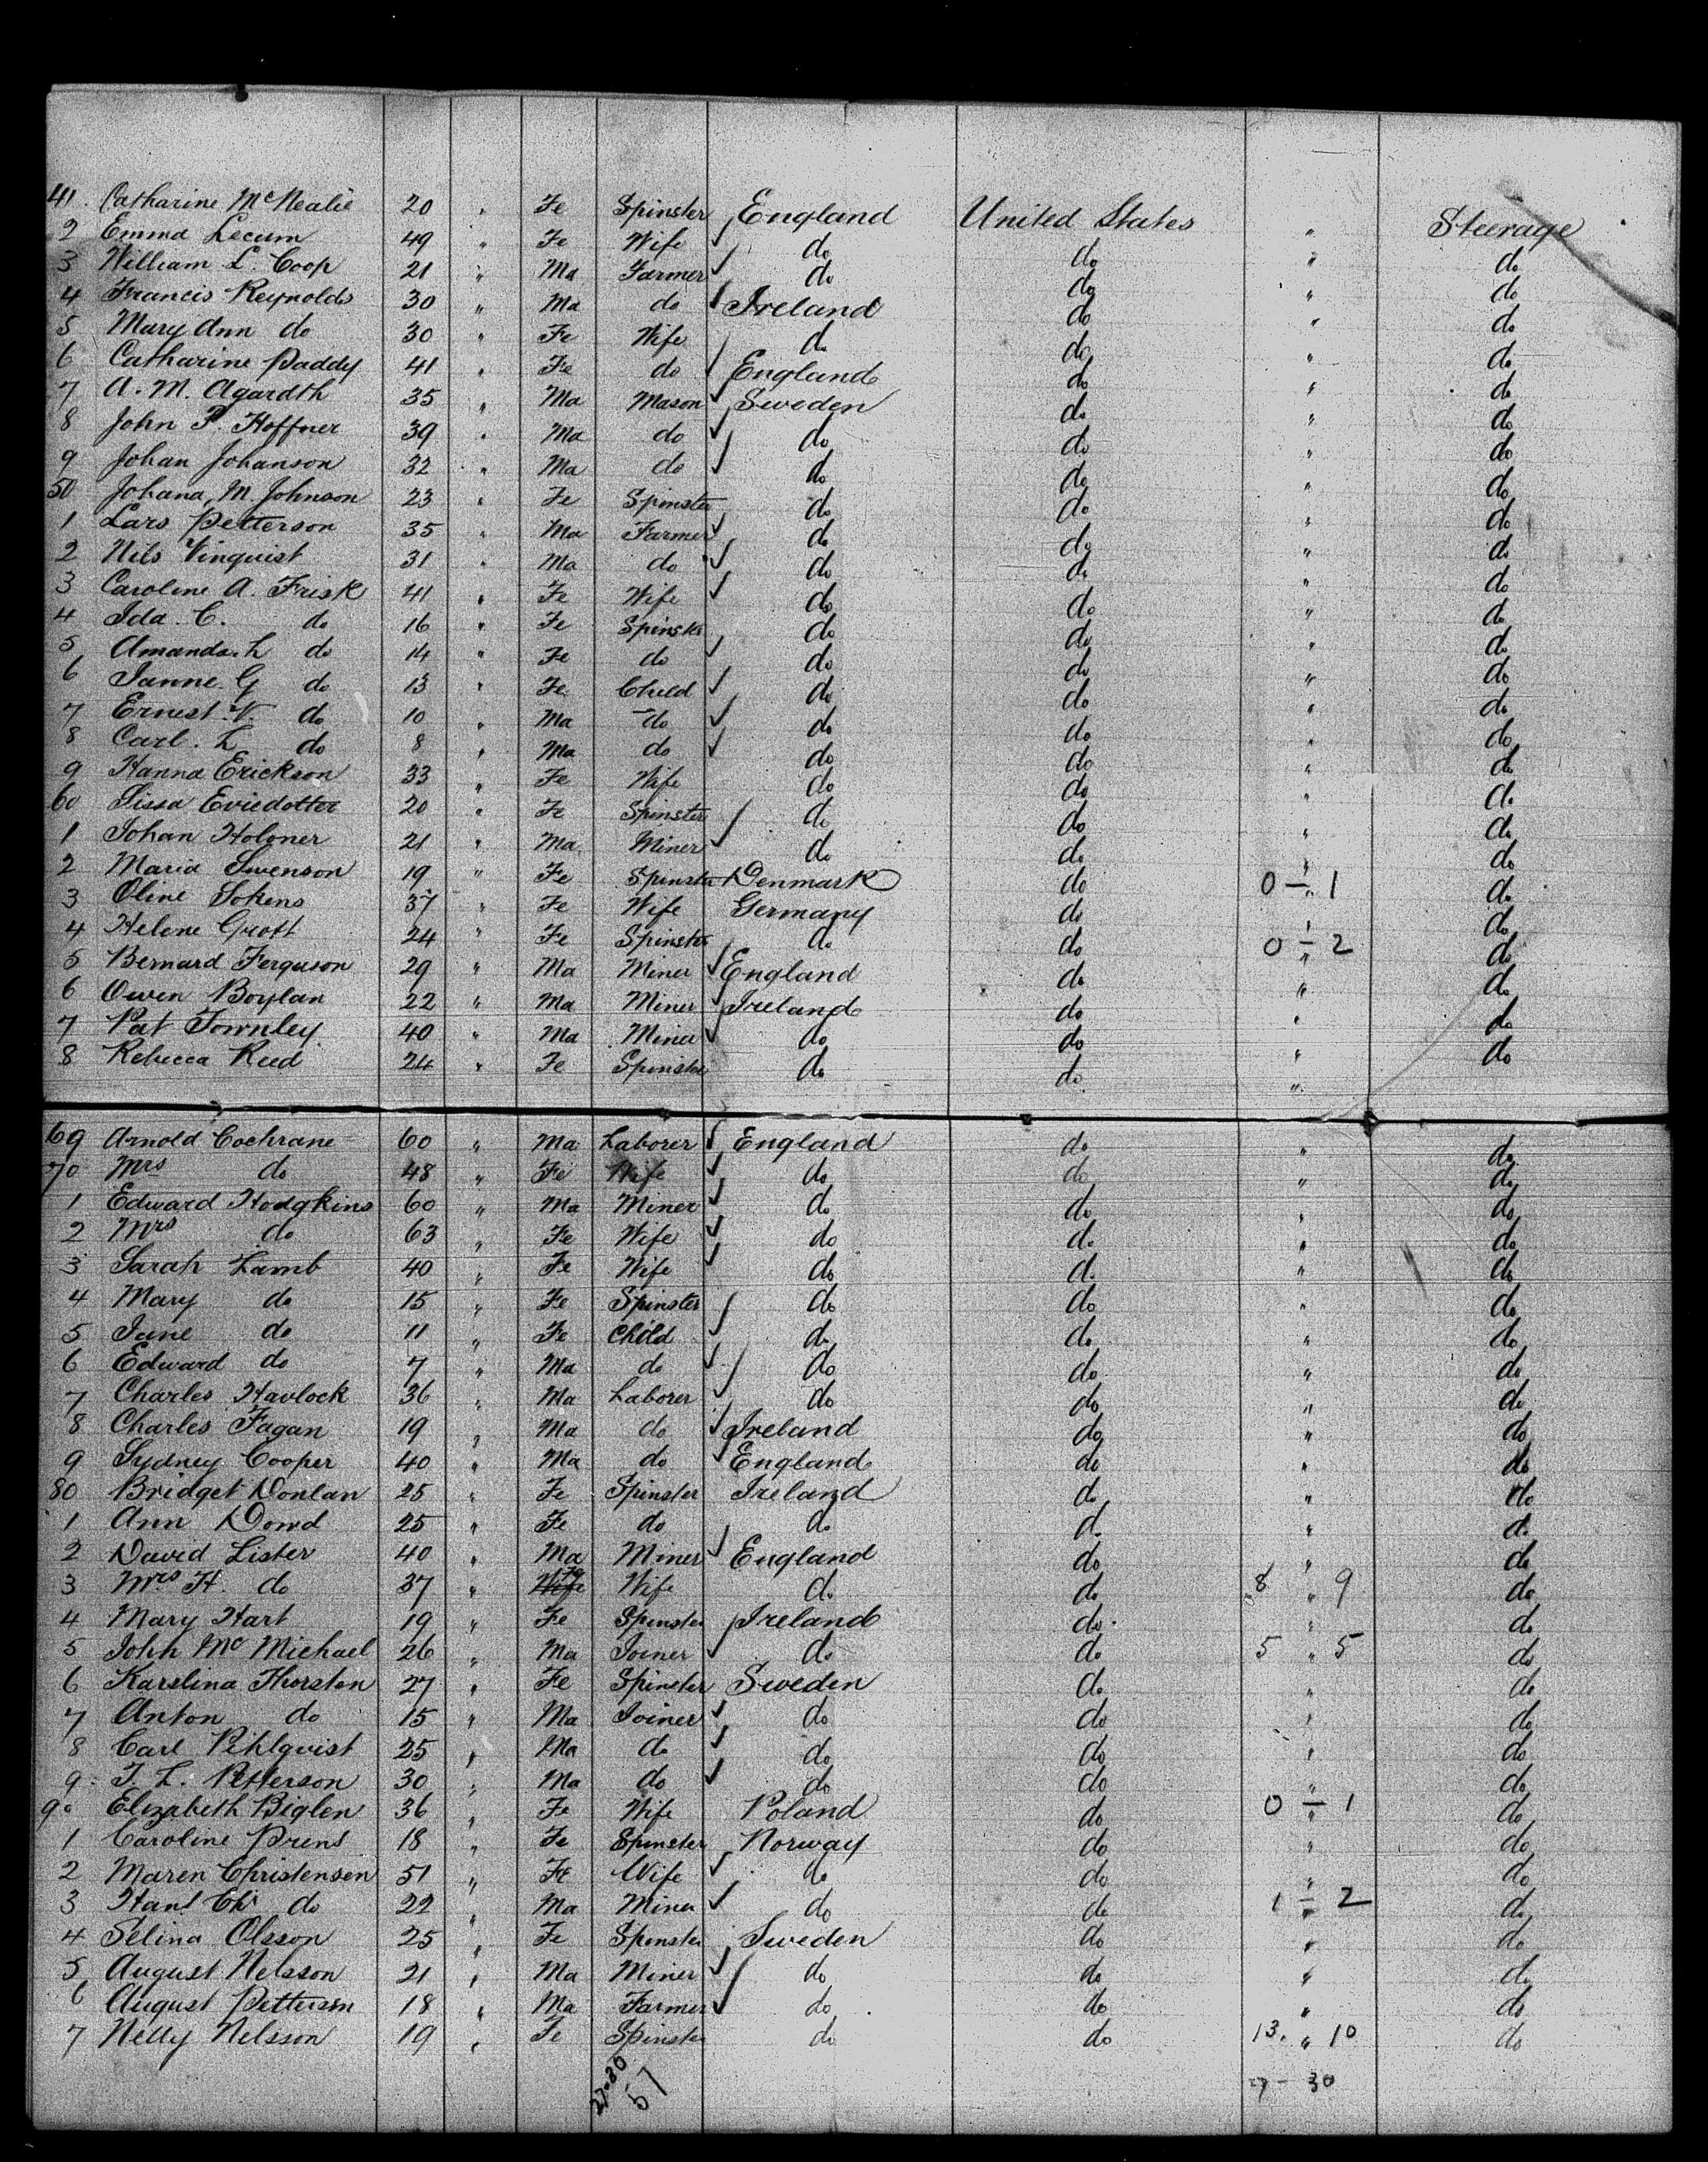 41. Catharine McNealie 20 " Fe Spinster England United States " Steerage
2 Emma Lecum 49 " Fe Wife do do " do
3 William L. Coop 21 " Ma Farmer do do " do
4 Francis Reynolds 30 " Ma do Ireland do " do
5 Mary Ann do 30 " Fe Wife do do " do
6 Catharine Paddy 41 " Fe do England do " do
7 A. M. Agardth 35 " Ma Mason Sweden do " do
8 John P. Hoffner 39 " Ma do do do " do
9 Johan Johanson 32 " Ma do do do " do
50 Johana M. Johnson 23 " Fe Spinster do do " do
1 Lars Petterson 35 " Ma Farmer do do " do
2 Nils Vinquist 31 " Ma do do do " do
3 Caroline A. Frisk 41 " Fe Wife do do " do
4 Ida C. do 16 " Fe Spinster do do " do
5 Amanda L do 14 " Fe do do do " do
6 Janne G do 13 " Fe Child do do " do
7 Ernest V. do 10 " Ma do do do " do
8 Carl. L do 8 " Ma do do do " do
9 Hanna Erickson 33 " Fe Wife do do " do
60 Sissa Eviedotter 20 " Fe Spinster do do " do
1 Johan Holoner 21 " Ma Miner do do " do
2 Maria Swenson 19 " Fe Spinster Denmark do 0 - 1 do
3 Oline Sokens 37 " Fe Wife Germany do " do
4 Helene Grott 24 " Fe Spinster do do 0 - 2 do
5 Bernard Ferguson 29 " Ma Miner England do " do
6 Owen Boylan 22 " Ma Miner Ireland do " do
7 Pat Townley 40 " Ma Miner do do " do
8 Rebecca Reed 24 " Fe Spinster do do "
69 Arnold Cochrane 60 " Ma Laborer England do " do
70 Mrs do 48 " Fe Wife do do " do
1 Edward Hodgkins 60 " Ma Miner do do " do
2 Mrs do 63 " Fe Wife do do " do
3 Sarah Lamb 40 " Fe Wife do do " do
4 Mary do 15 " Fe Spinster do do " do
5 Jane do 11 " Fe Child do do " do
6 Edward do 7 " Ma do do do " do
7 Charles Havlock 36 " Ma Laborer do do " do
8 Charles Fagan 19 " Ma do Ireland do " do
9 Sydney Cooper 40 " Ma do England do " do
80 Bridget Donlan 25 " Fe Spinster Ireland do " do
1 Ann Dowd 25 " Fe do do do " do
2 David Lister 40 " Ma Miner England do " do
3 Mrs H. do 37 " Fe Wife do do 8 " 9 do
4 Mary Hart 19 " Fe Spinster Ireland do " do
5 John McMichael 26 " Ma Joiner do do 5 " 5 do
6 Karslina Thorsten 27 " Fe Spinster Sweden do " do
7 Anton do 15 " Ma Joiner do do " do
8 Carl Pihlqvist 25 " Ma do do do " do
9. J. L. Petterson 30 " Ma do do do " do
90 Elizabeth Biglen 36 " Fe Wife Poland do 0 - 1 do
1 Caroline Prens 18 " Fe Spinster Norway do " do
2 Maren Christensen 51 " Fe Wife do do " do
3 Hans Chr do 22 " Ma Miner do do 1 - 2 do
4 Selina Olsson 25 " Fe Spinster Sweden do " do
5 August Nelsson 21 " Ma Miner do do " do
6 August Petterson 18 " Ma Farmer do do " do
7 Nelly Nelsson 19 " Fe Spinster do do 13. " 10 do
27-30
57
27 - 30